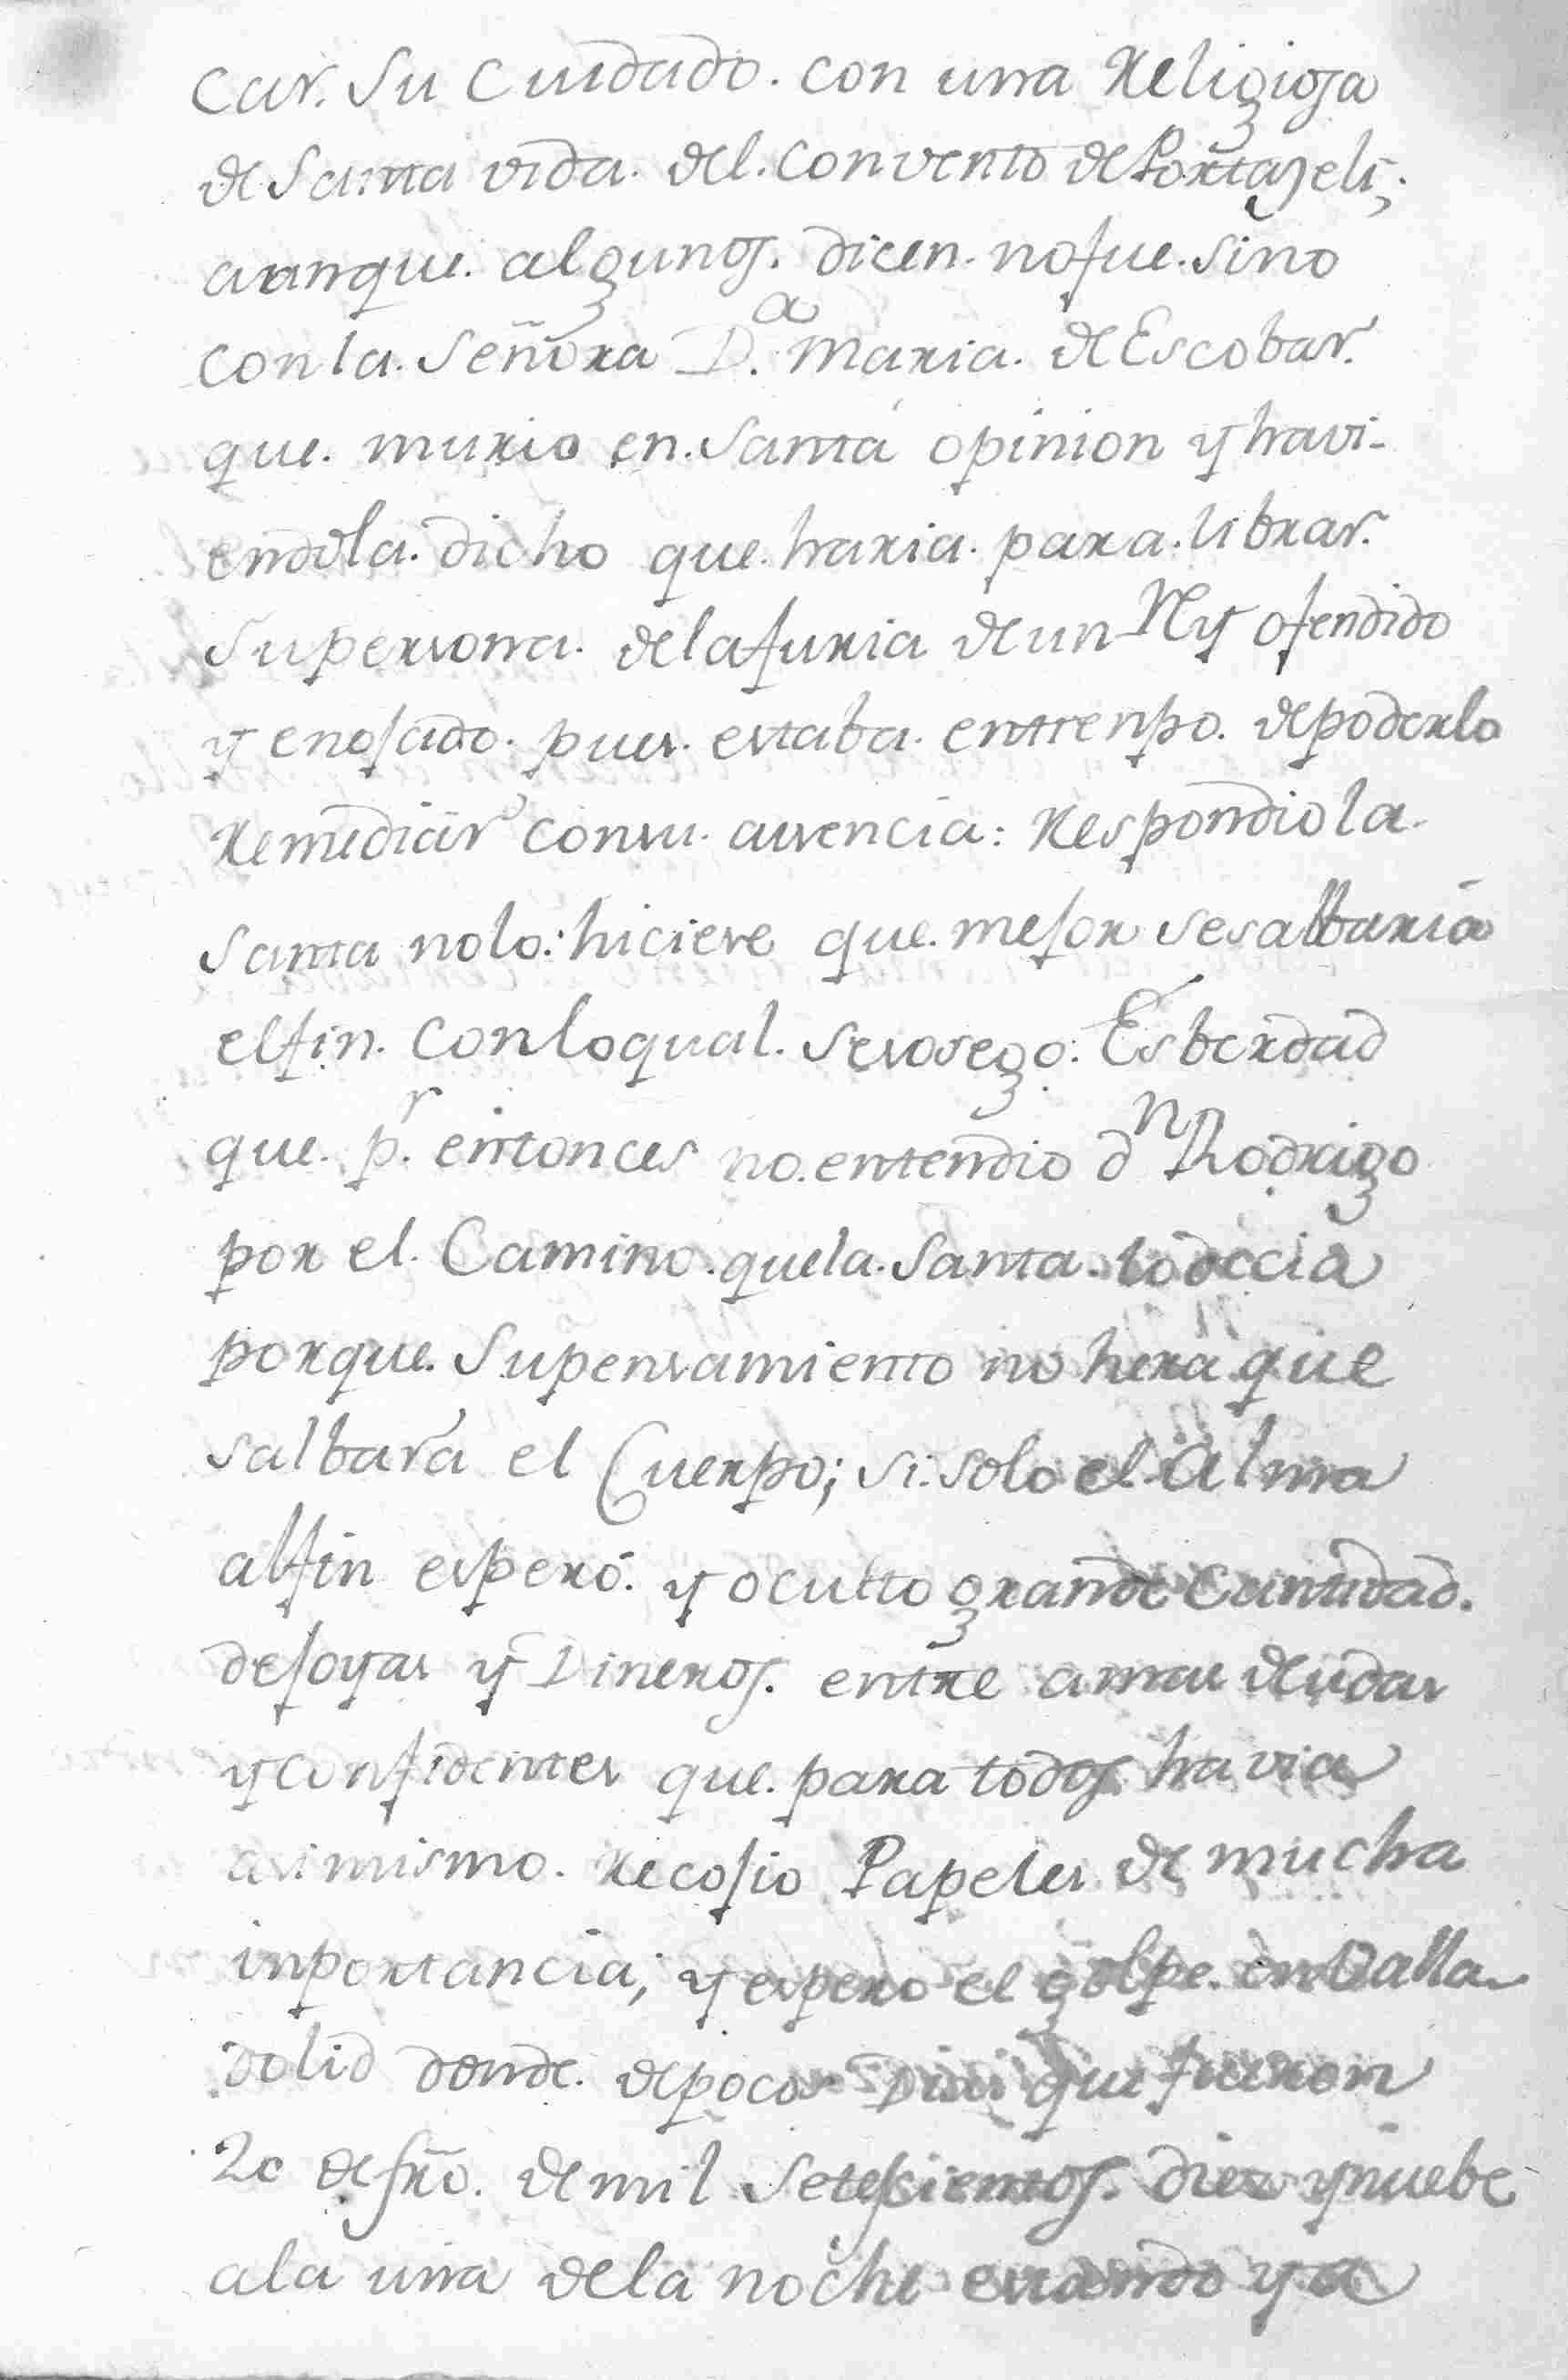 car. Su Cuidado. con una Religiosa
de Santa vida. del. Convento de Portazeli;
aunque. algunos. dicen. no fue. sino
con la. Señora D.ª Maria. de Escobar.
que. murio en. Santa opinion y havi-
endola. dicho que. haria. para. librar.
su persona. de la furia de un Rey ofendido
y enojado. pues. estaba. entrenpo. de poderlo
Remediar con su. ausencia: Respondio la.
Santa no lo: hiciese que. mejor se salbaria
el fin. Con lo qual. se sosego. Es berdad
que. p.r entonces no. entendio dn Rodrigo
por el. Camino. que la. Santa. lo decia
porque. Su pensamiento no hera que
salbara el Cuerpo; si. solo el. Alma
al fin esperó. y oculto grande Cantidad.
de joyas y Dineros. entre amas deudas
y confidentes que. para todos. havia
asimismo. Recojio Papeles de mucha
inportancia; y espero el golpe. en Valla
dolid donde. de pocos Dias que fueron
20 de fro. de mil Setesientos. diez y nuebe
a la una de la noche estando ya